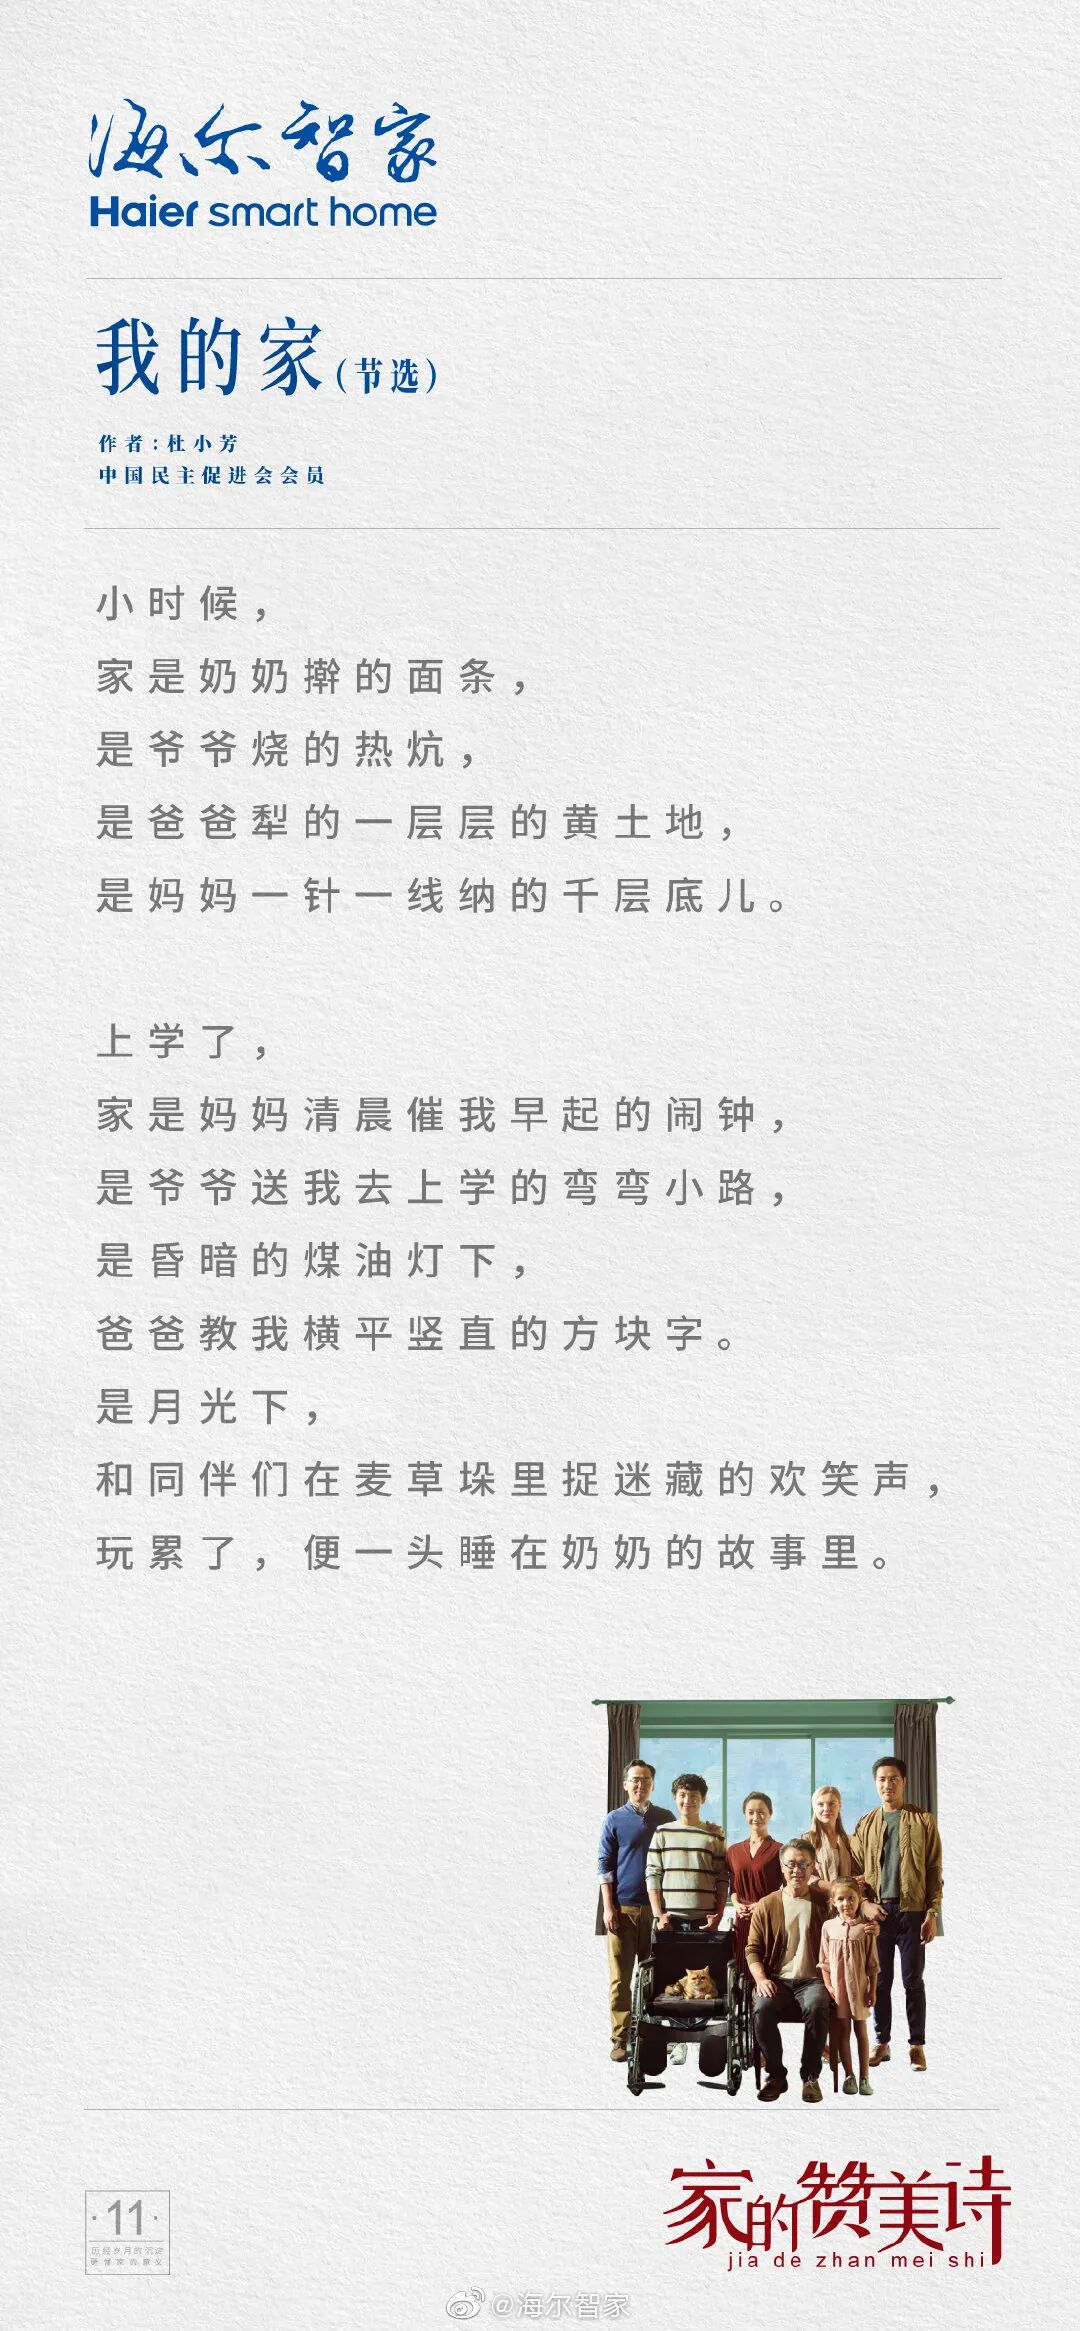 海尔智家
Haier smart home
我的家(节选)
作者:杜小芳
中国民主促进会会员
小时候，
家是奶奶擀的面条，
是爷爷烧的热炕，
是爸爸犁的一层层的黄土地，
是妈妈一针一线纳的千层底儿。
上学了，
家是妈妈清晨催我早起的闹钟，
是爷爷送我去上学的弯弯小路，
是昏暗的煤油灯下，
爸爸教我横平竖直的方块字。
是月光下，
和同伴们在麦草垛里捉迷藏的欢笑声，
玩累了，便一头睡在奶奶的故事里。
·11·
历经岁月的沉淀
更懂家的意义
家的赞美诗
jia de zhan mei shi
@海尔智家